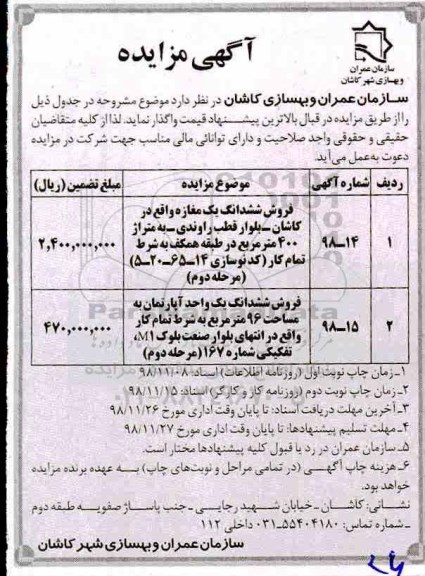 آگهی مزایده
سازمان عمران
و بهسازی شهر کاشان
سازمان عمران و بهسازی کاشان در نظر دارد موضوع مشروحه در جدول ذیل
را از طریق مزایده در قبال بالاترین پیشنهاد قیمت واگذار نماید. لذا از کلیه متقاضیان
حقیقی و حقوقی واجد صلاحیت و دارای توانائی مالی مناسب جهت شرکت در مزایده
دعوت به‌عمل می‌آید.
ردیف شماره آگهی موضوع مزایده مبلغ تضمین (ریال)
۱ ۱۴-۹۸ فروش ششدانگ یک مغازه واقع در
کاشان - بلوار قطب راوندی - به متراژ
۴۰۰ مترمربع در طبقه همکف به شرط
تمام کار (کد نوسازی ۱۴-۶۵-۲۰-۵)
(مرحله دوم)
۲,۴۰۰,۰۰۰,۰۰۰
۲ ۱۵-۹۸ فروش ششدانگ یک واحد آپارتمان به
مساحت ۹۶ مترمربع به شرط تمام کار
واقع در انتهای بلوار صنعت بلوک M۱،
تفکیکی شماره ۱۶۷ (مرحله دوم)
۴۷۰,۰۰۰,۰۰۰
۱- زمان چاپ نوبت اول (روزنامه اطلاعات) اسناد: ۹۸/۱۱/۰۸
۲- زمان چاپ نوبت دوم (روزنامه کار و کارگر) اسناد: ۹۸/۱۱/۱۵
۳- آخرین مهلت دریافت اسناد: تا پایان وقت اداری مورخ ۹۸/۱۱/۲۶
۴- مهلت تسلیم پیشنهادها: تا پایان وقت اداری مورخ ۹۸/۱۱/۲۷
۵- سازمان عمران در رد یا قبول کلیه پیشنهادها مختار است.
۶- هزینه چاپ آگهی (در تمامی مراحل و نوبت‌های چاپ) به عهده برنده مزایده
خواهد بود.
نشانی: کاشان - خیابان شهید رجایی - جنب پاساژ صفویه طبقه دوم
- شماره تماس: ۵۵۴۰۴۱۸۰-۰۳۱ داخلی ۱۱۲
سازمان عمران و بهسازی شهر کاشان